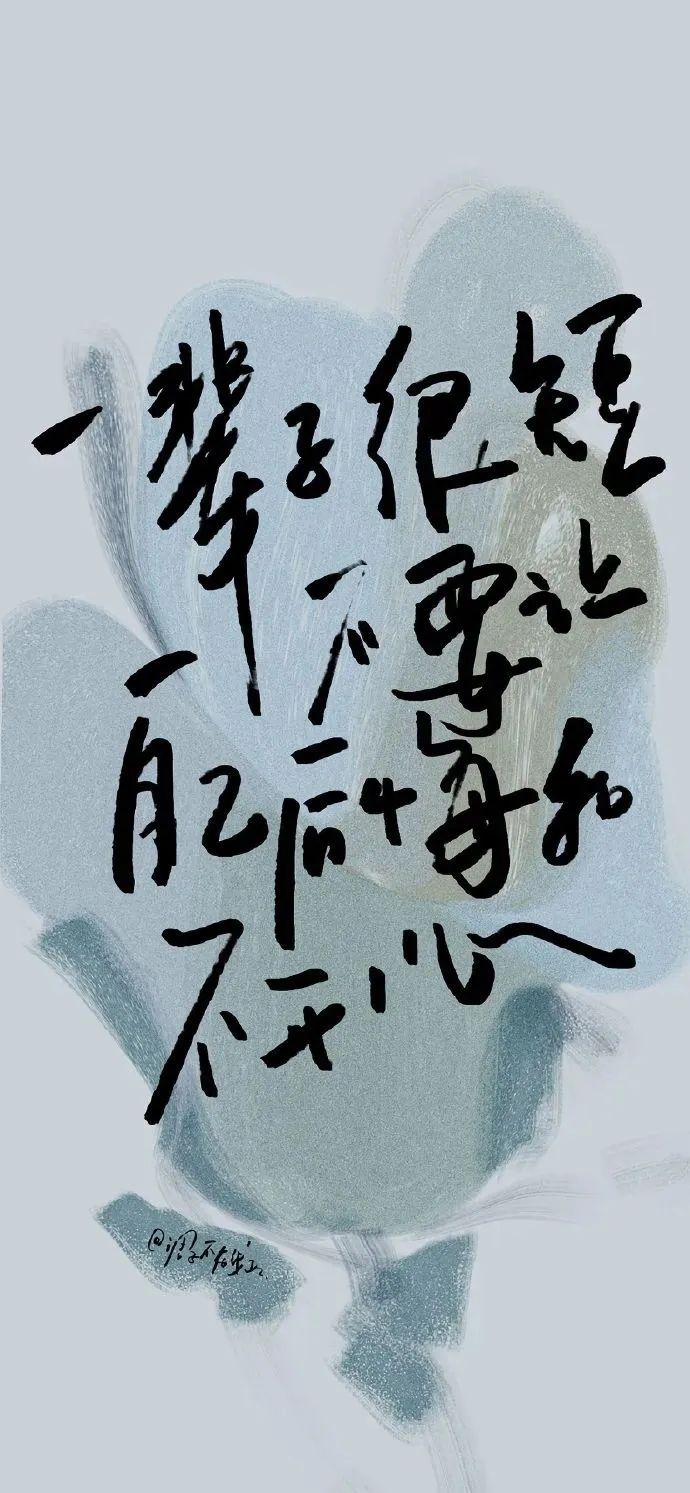 一辈子很短
不要让
自己后悔和
不开心